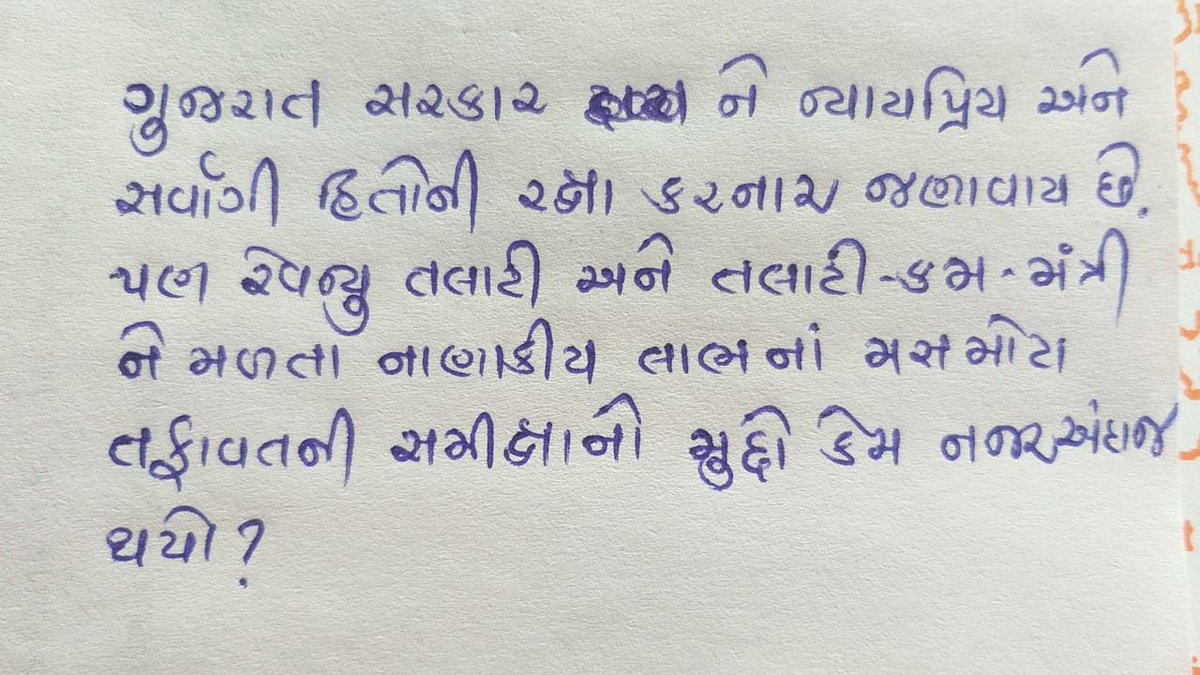 ગુજરાત સરકાર ને ન્યાયપ્રિય અને
સર્વાંગી હિતોની રક્ષા કરનારા જણાવાય છે.
પણ રેવન્યુ તલાટી અને તલાટી-કમ-મંત્રી
ને મળતા નાણાકીય લાભનાં મસમોટા
તફાવતની સમીક્ષાનો મુદ્દો કેમ નજરઅંદાજ
થયો?